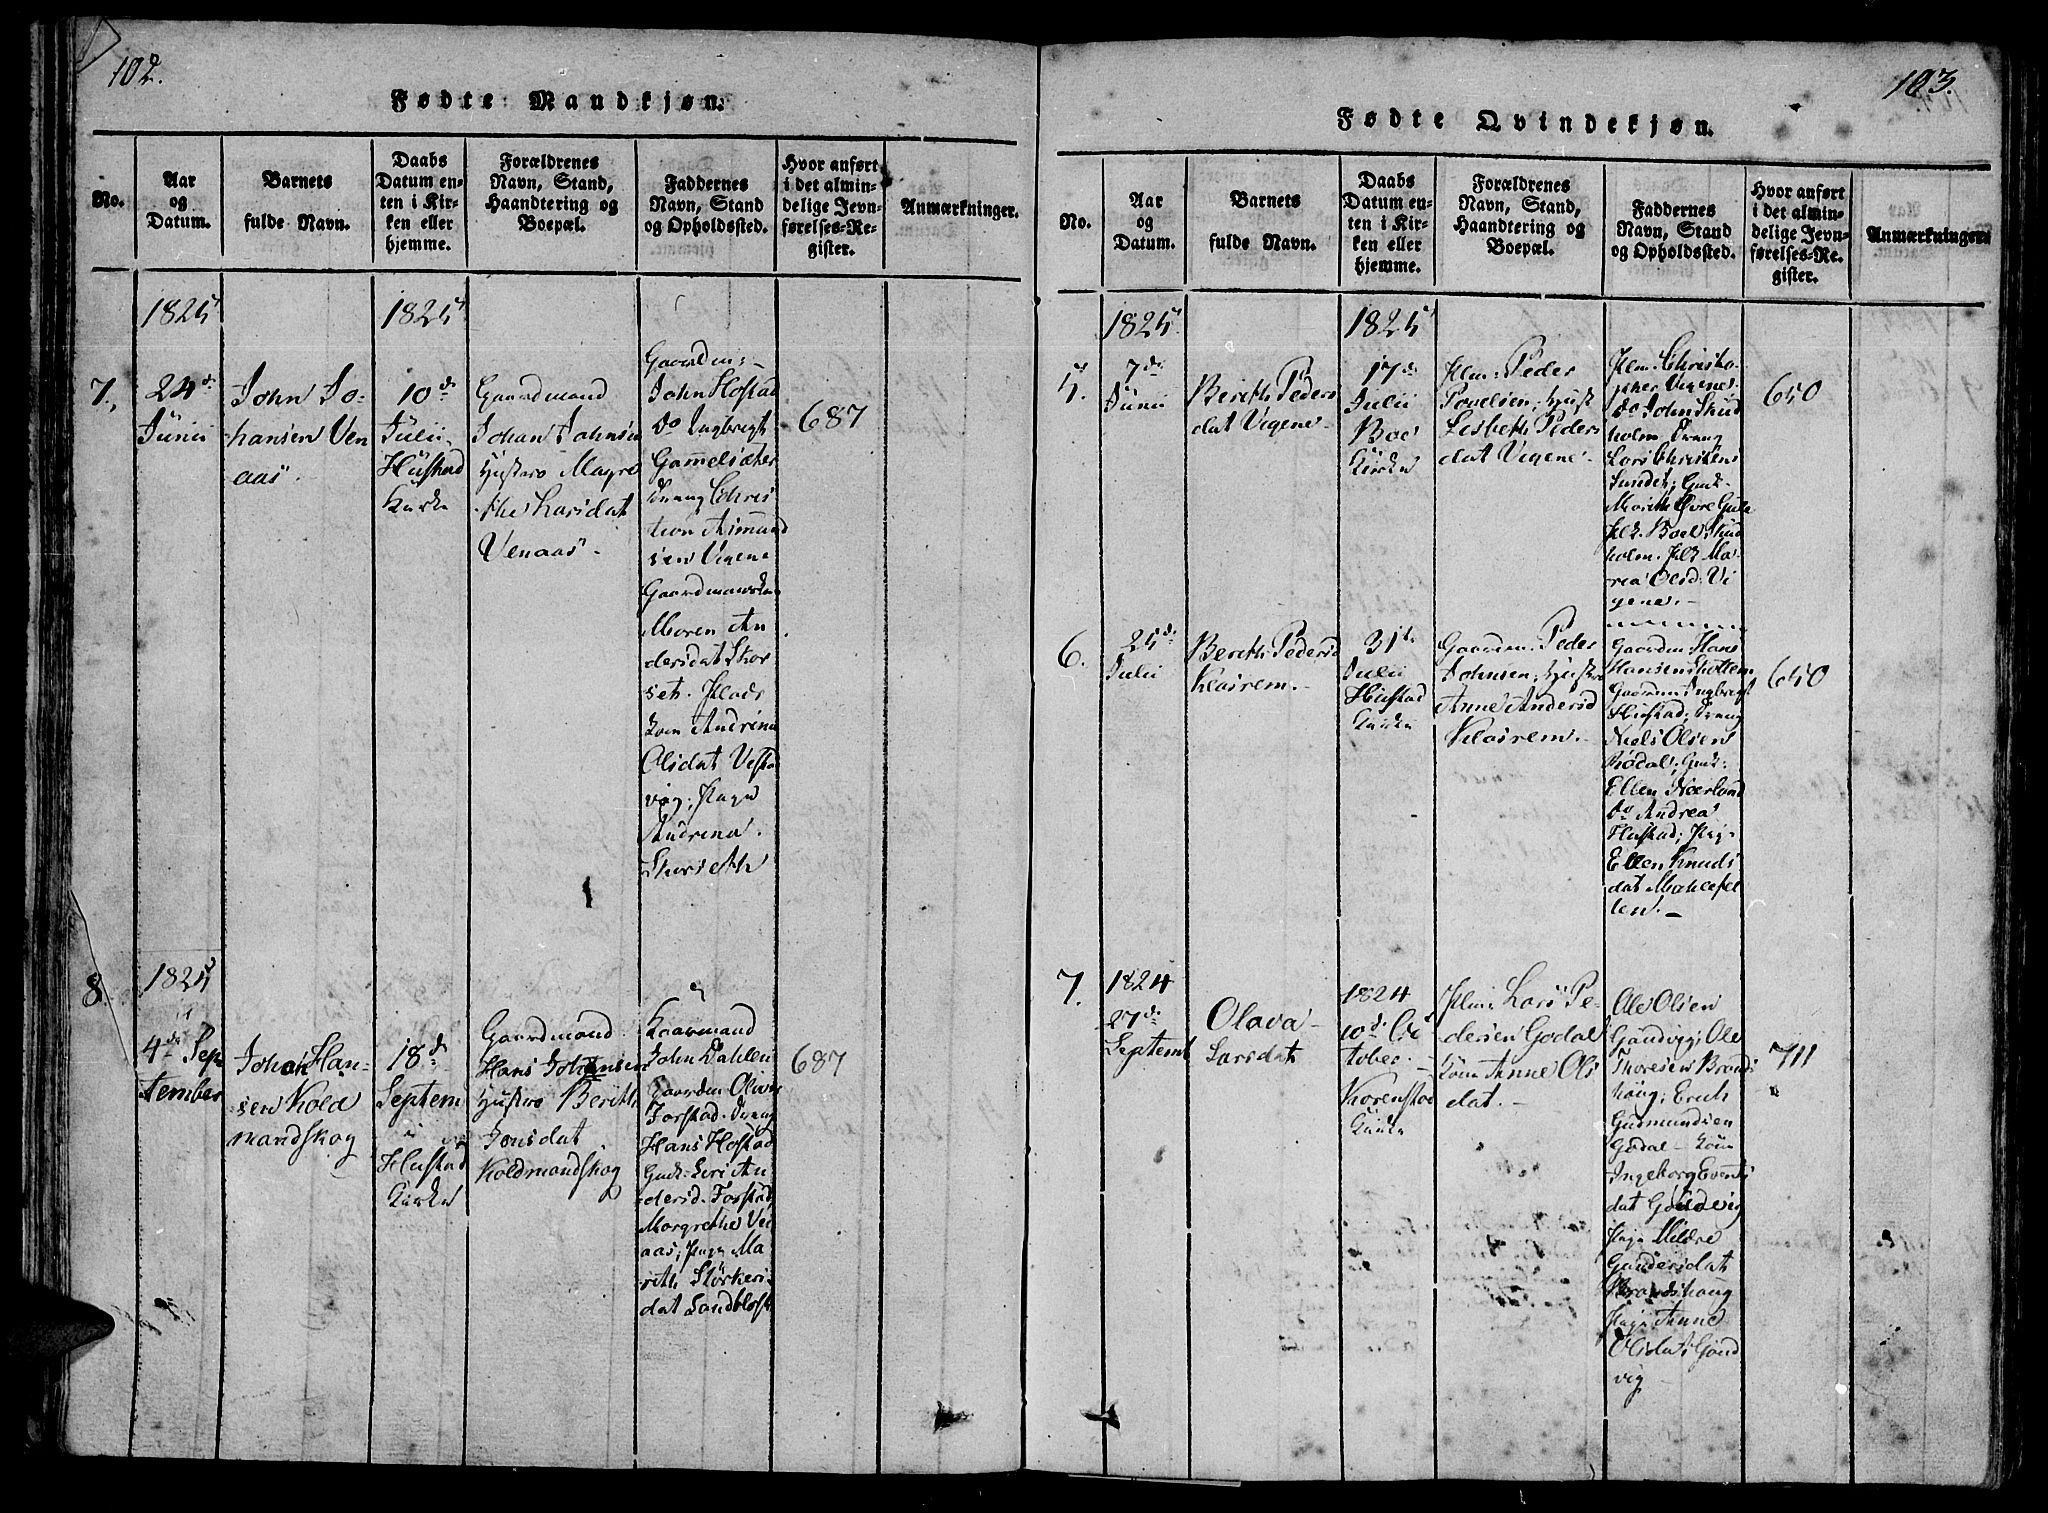 102.
Fødte Mandkjøn.
No.
Aar
og
Datum.
Barnets
fulde Navn.
Daabs
Datum en-
ten i Kir-
ken eller
hjemme.
Forældrenes
Navn, Stand,
Haandtering og
Boepæl.
Faddernes
Navn, Stand
og Opholdssted.
Hvor anført
i det almin-
delige Jevn-
førelses-Re-
gister.
Anmærkninger.
7.
1825
24de
Junii
John Jo-
hansen Ven
aas.
1825
10de
Julii
Hustad
Kirke
Gaardmand
Johan Johnsen
Hustro Magre
the Larsdat
Venaas.
Gaardm:
John Hostad
do Ingbrigt
Gammelsæter
Dreng Chris
tian Asmund
sen Vigene
Maren An
dersdat Skor
set.
Kone Andrine
Olsdat Vestad
vig; Pige
Andrina
Skorseth
687
8.
1825
4de Sep
tember
Johan Han-
sen Kold
mandskog
18de
Septem
Hustad
Kirke
Gaardmand
Hans Johansen
Hustro Berith
Jonsdat
Koldmandskog
Kaarmand
John Dahlen
Gaardm Oliver
Forstad. Dreng
Hans Hostad
Gmk: Siri An
dersd. Forstad
Margrethe Ven
aas; Pige Ma
rith Størkers
dat Sandblost
687
103.
Fødte Qvindekjøn.
No.
Aar
og
Datum.
Barnets
fulde Navn.
Daabs
Datum en-
ten i Kir-
ken eller
hjemme.
Forældrenes
Navn, Stand,
Haandtering og
Boepæl.
Faddernes
Navn, Stand
og Opholdssted.
Hvor anført
i det almin-
delige Jevn-
førelses-Re-
gister.
Anmærkninger
5.
1825.
7de
Junii
Berith Peders
dat Vigene
1825
17de
Julii
Boe
Kirke
Plm: Peder
Povelsen; Hust
Lisbeth Peders
dat Vigene
Plm: Christo-
pher Vigene
do John Skud
holm Dreng
Lars Christens
Marith Øvre
Boel Skud
holm. Ma-
rea Olsd: Vi
gene.
650
6.
25de
Julii
Berith Pedersd
Klasrem.
31te
Julii
Hustad
Kirke
Gaardm: Peder
Johnsen; Hustr
Anne Andersd
Klasrem.
Gaardm Hans
Hansen Skottem
Gaarm: Ingbrigt
Hustad; Dreng
Niels Olsen
Rødal; Gmk:
Ellen Nærland
do Andrea
Hustad; Pig:
Ellen Knuds
dat Malefel
len.
650
7.
1824
27de
Septemb
Olava
Larsdat
1824
10de Oc
tober
Kornstad
Kirke
Plm: Lars Pe-
dersen Godal
Kone Anne Ols
dat.
Ole Olsen
Gundvig; Ole
Thoresen Brands
houg; Erich
Gudmundsen
Godal Kone
Ingeborg Events
dat Gundvig
Pige Mildre
Gundersdat
Brandshoug
Pige Anne
Olsdat Gund
vig
711